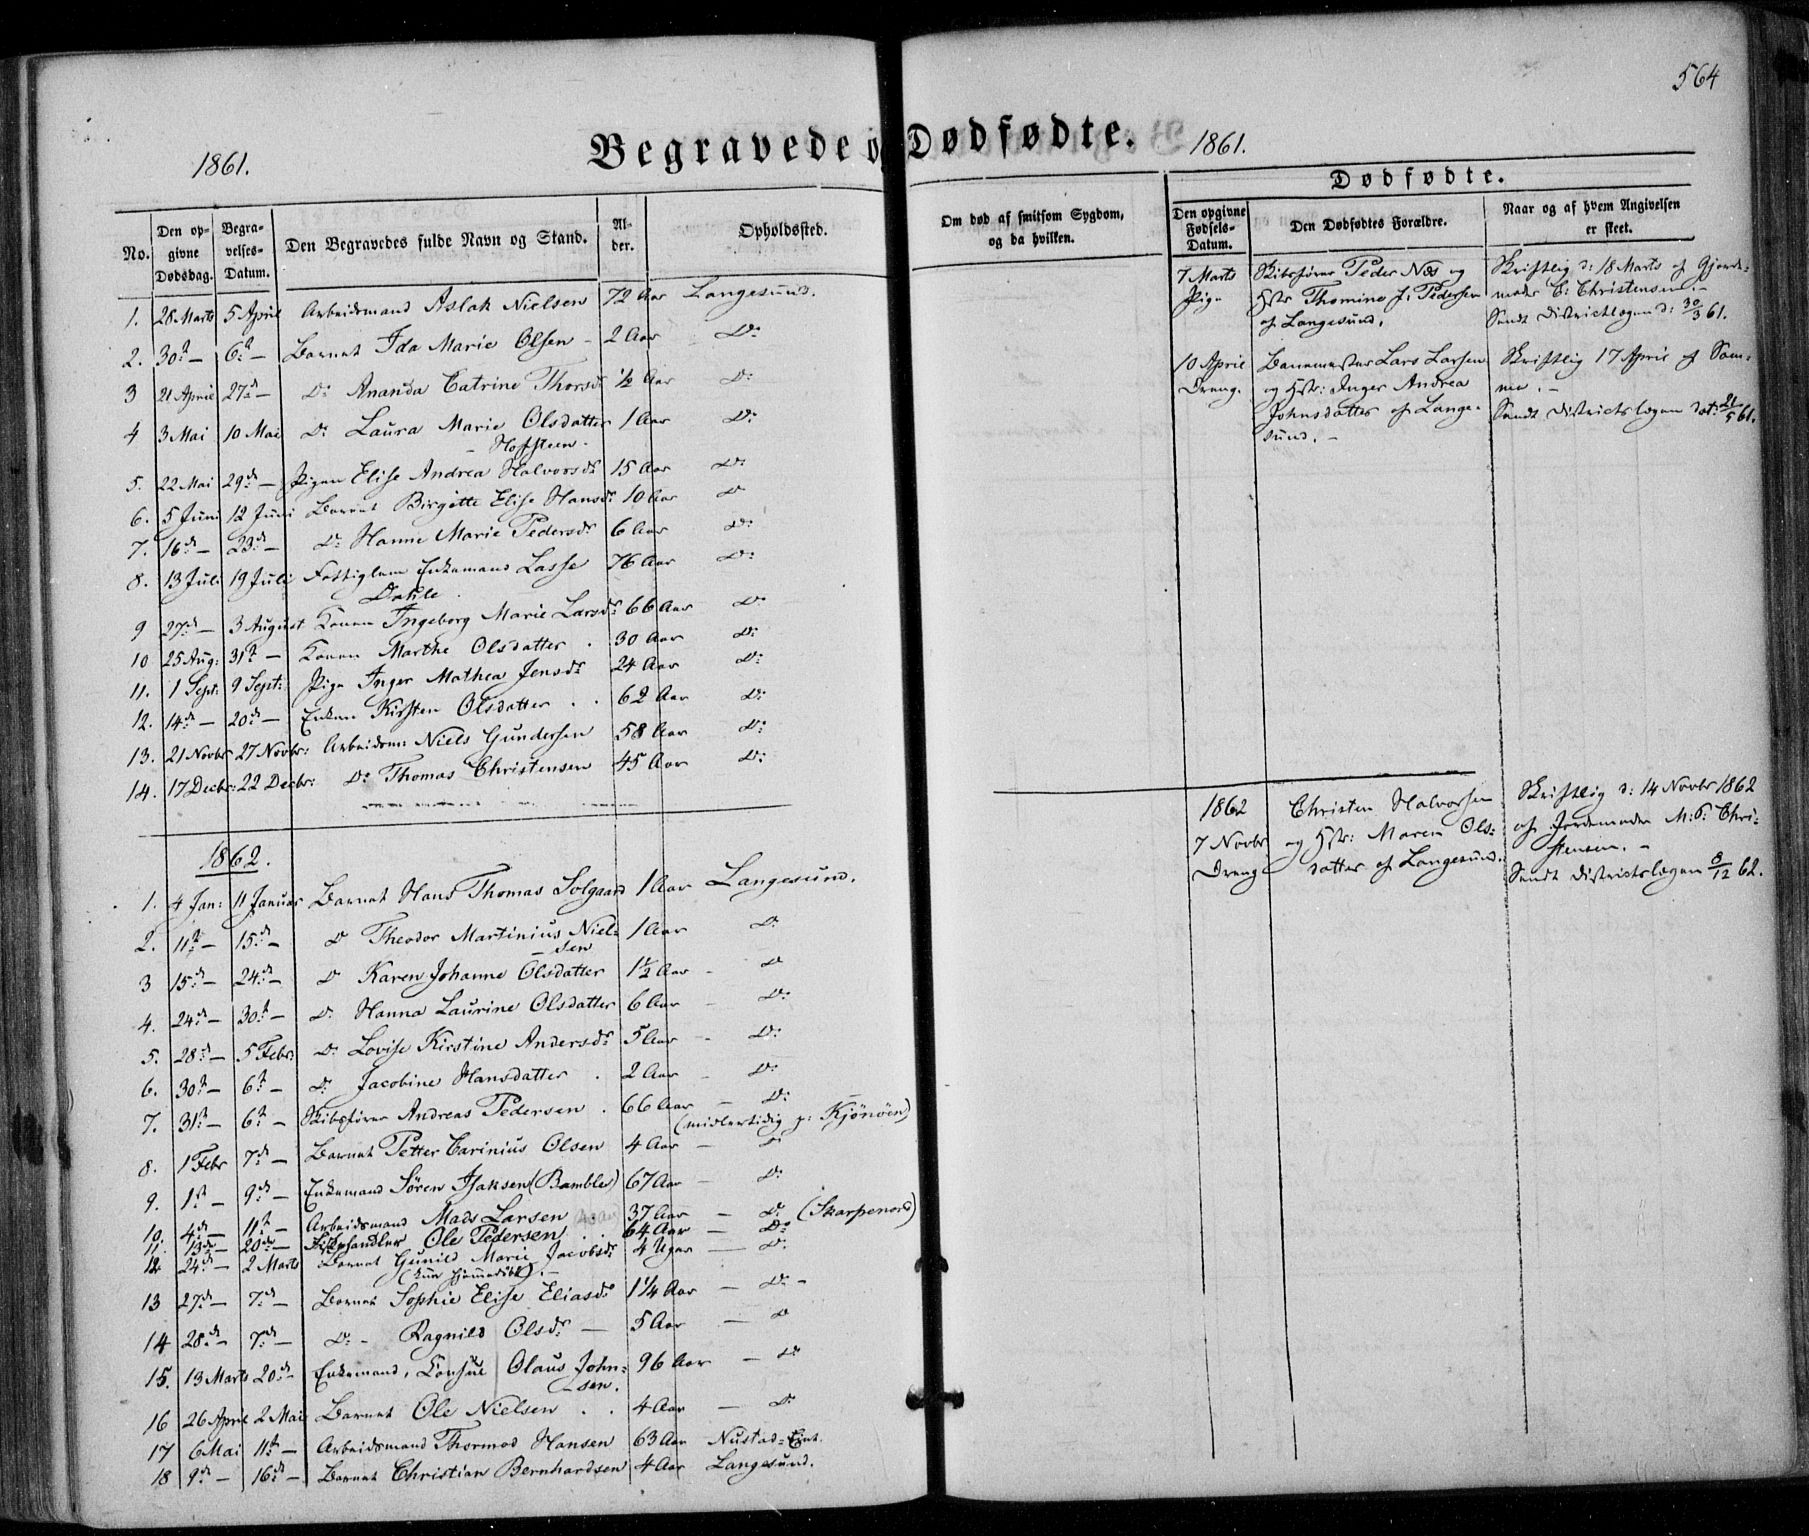 564
Begravede o Dødfødte.
1861.
1861.
No.
Den opgivne Dødsdag.
Begravelses-Datum.
Den Begravedes fulde Navn og Stand.
Alder.
Opholdssted.
Om død af smitsom Sygdom, og da hvilken.
Dødfødte.
Den opgivne Fødsels-Datum.
Den Dødfødtes Forældre.
Naar og af hvem Angivelsen er skeet.
1. 28 Marts 5 April Arbeidsmand Aslak Nielsen 72 Aar Langesund.
2. 30te — 6te — Barnet Ida Marie Olsen - 2 Aar Do
3 21 April 27de — Do Ananda Catrine Thorsdr ½ Aar Do
4 3 Mai 10 Mai Do Laura Marie Olsdatter 1 Aar Do
— Hoffsteen -
5. 22 Mai 29de — Pigen Elise Andrea Halvorsdr 15 Aar Do
6. 5 Juni 12 Juni Barnet Birgitte Elise Hansdr 10 Aar Do
7. 16de — 23de — Do Hanne Marie Pedersdr 6 Aar Do
8. 13 Juli 19 Juli Fattiglem Enkemand Lasse 76 Aar Do
Dahle.
9 27de — 3 August Konen Ingeborg Marie Larsdr 66 Aar Do
10 25 Aug: 31te — Konen Marthe Olsdatter . 30 Aar Do
11. 1 Sept: 9 Sept: Pige Inger Mathea Jensdr 24 Aar Do
12. 14de — 20de — Enken Kirsten Olsdatter . . 62 Aar Do
13. 21 Novbr 27 Novbr: Arbeidsm: Niels Gundersen 58 Aar Do
14. 17 Decbr: 22 Decbr: Do Thomas Christensen 45 Aar Do
1862.
1. 4 Jan: 11 Januar Barnet Hans Thomas Solgaard 1 Aar Langesund.
2. 11te — 15de — Do Theodor Martinius Niel- 1 Aar Do
sen
3 15de — 24de — Do Karen Johanne Olsdatter 1½ Aar - Do
4. 24de — 30te — Do Hanna Laurine Olsdatter 6 Aar - Do
5. 28de — 5 Febr: Do Lovise Kirstine Andersdr 5 Aar - Do
6. 30te — 6te — Do Jacobine Hansdatter . 2 Aar - Do
7. 31te — 6te — Skibsfører Andreas Pedersen . 66 Aar — Do
(midlertidig p: Kjönöen)
8. 1 Febr 7de — Barnet Petter Carinius Olsen 4 Aar — Do
9. 1ste — 9de — Enkemand Sören Isaksen (Bamble) 67 Aar — Do
10. 4de — 11te — Arbeidsmand Mads Larsen 37 Aar — Do (Skarpenord)
11. 13de — 20de — Ole Pedersen . . 64 Aar — Do
12 24de — 2 Marts Barnet Gunild Marie Jacobsdr 4 Uger — Do
(kun hjemmedöbt). —
13 27de — 7de — Barnet Sophie Elise Eliasdr 1¼ Aar — Do -
14 28de — 7de — Do - Ragnild Olsdr — 5 Aar — Do
15. 13 Marts 20de - Enkemand, Consul Olaus John- 96 Aar — Do
sen.
16 26 April 2 Mai Barnet Ole Nielsen . . 4 Aar — Do
17 6 Mai 11te — Arbeidsmand Thormod Hansen 63 Aar Nustad=
18 9de — 16de — Barnet Christian Bernhardsen 4 Aar Langesund.
7 Marts
Pige
Skibsfører Peder Næs og
Hstr Thomine J: Pedersen
af Langesund.
Skriftlig d: 18 Marts af Gjorde-
moder C: Christensen. -
Sendt Districtslægen d: 30/3 61.
10 April
Dreng.
Banemester Lars Larsen
og Hstr: Inger Andrea
Johnsdatter af Lange-
sund. -
Skriftlig 17 April af Sam-
me. -
Sendt Districtslægen dat: 21/5 61.
1862
7 Novbr
Dreng
Christen Halvorsen
og Hstr: Maren Ols-
datter af Langesund.
Skriftlig d: 14 Novbr 1862
af Jordemoder M: C: Chri-
stensen. -
Sendt Districtslægen 8/12 62.